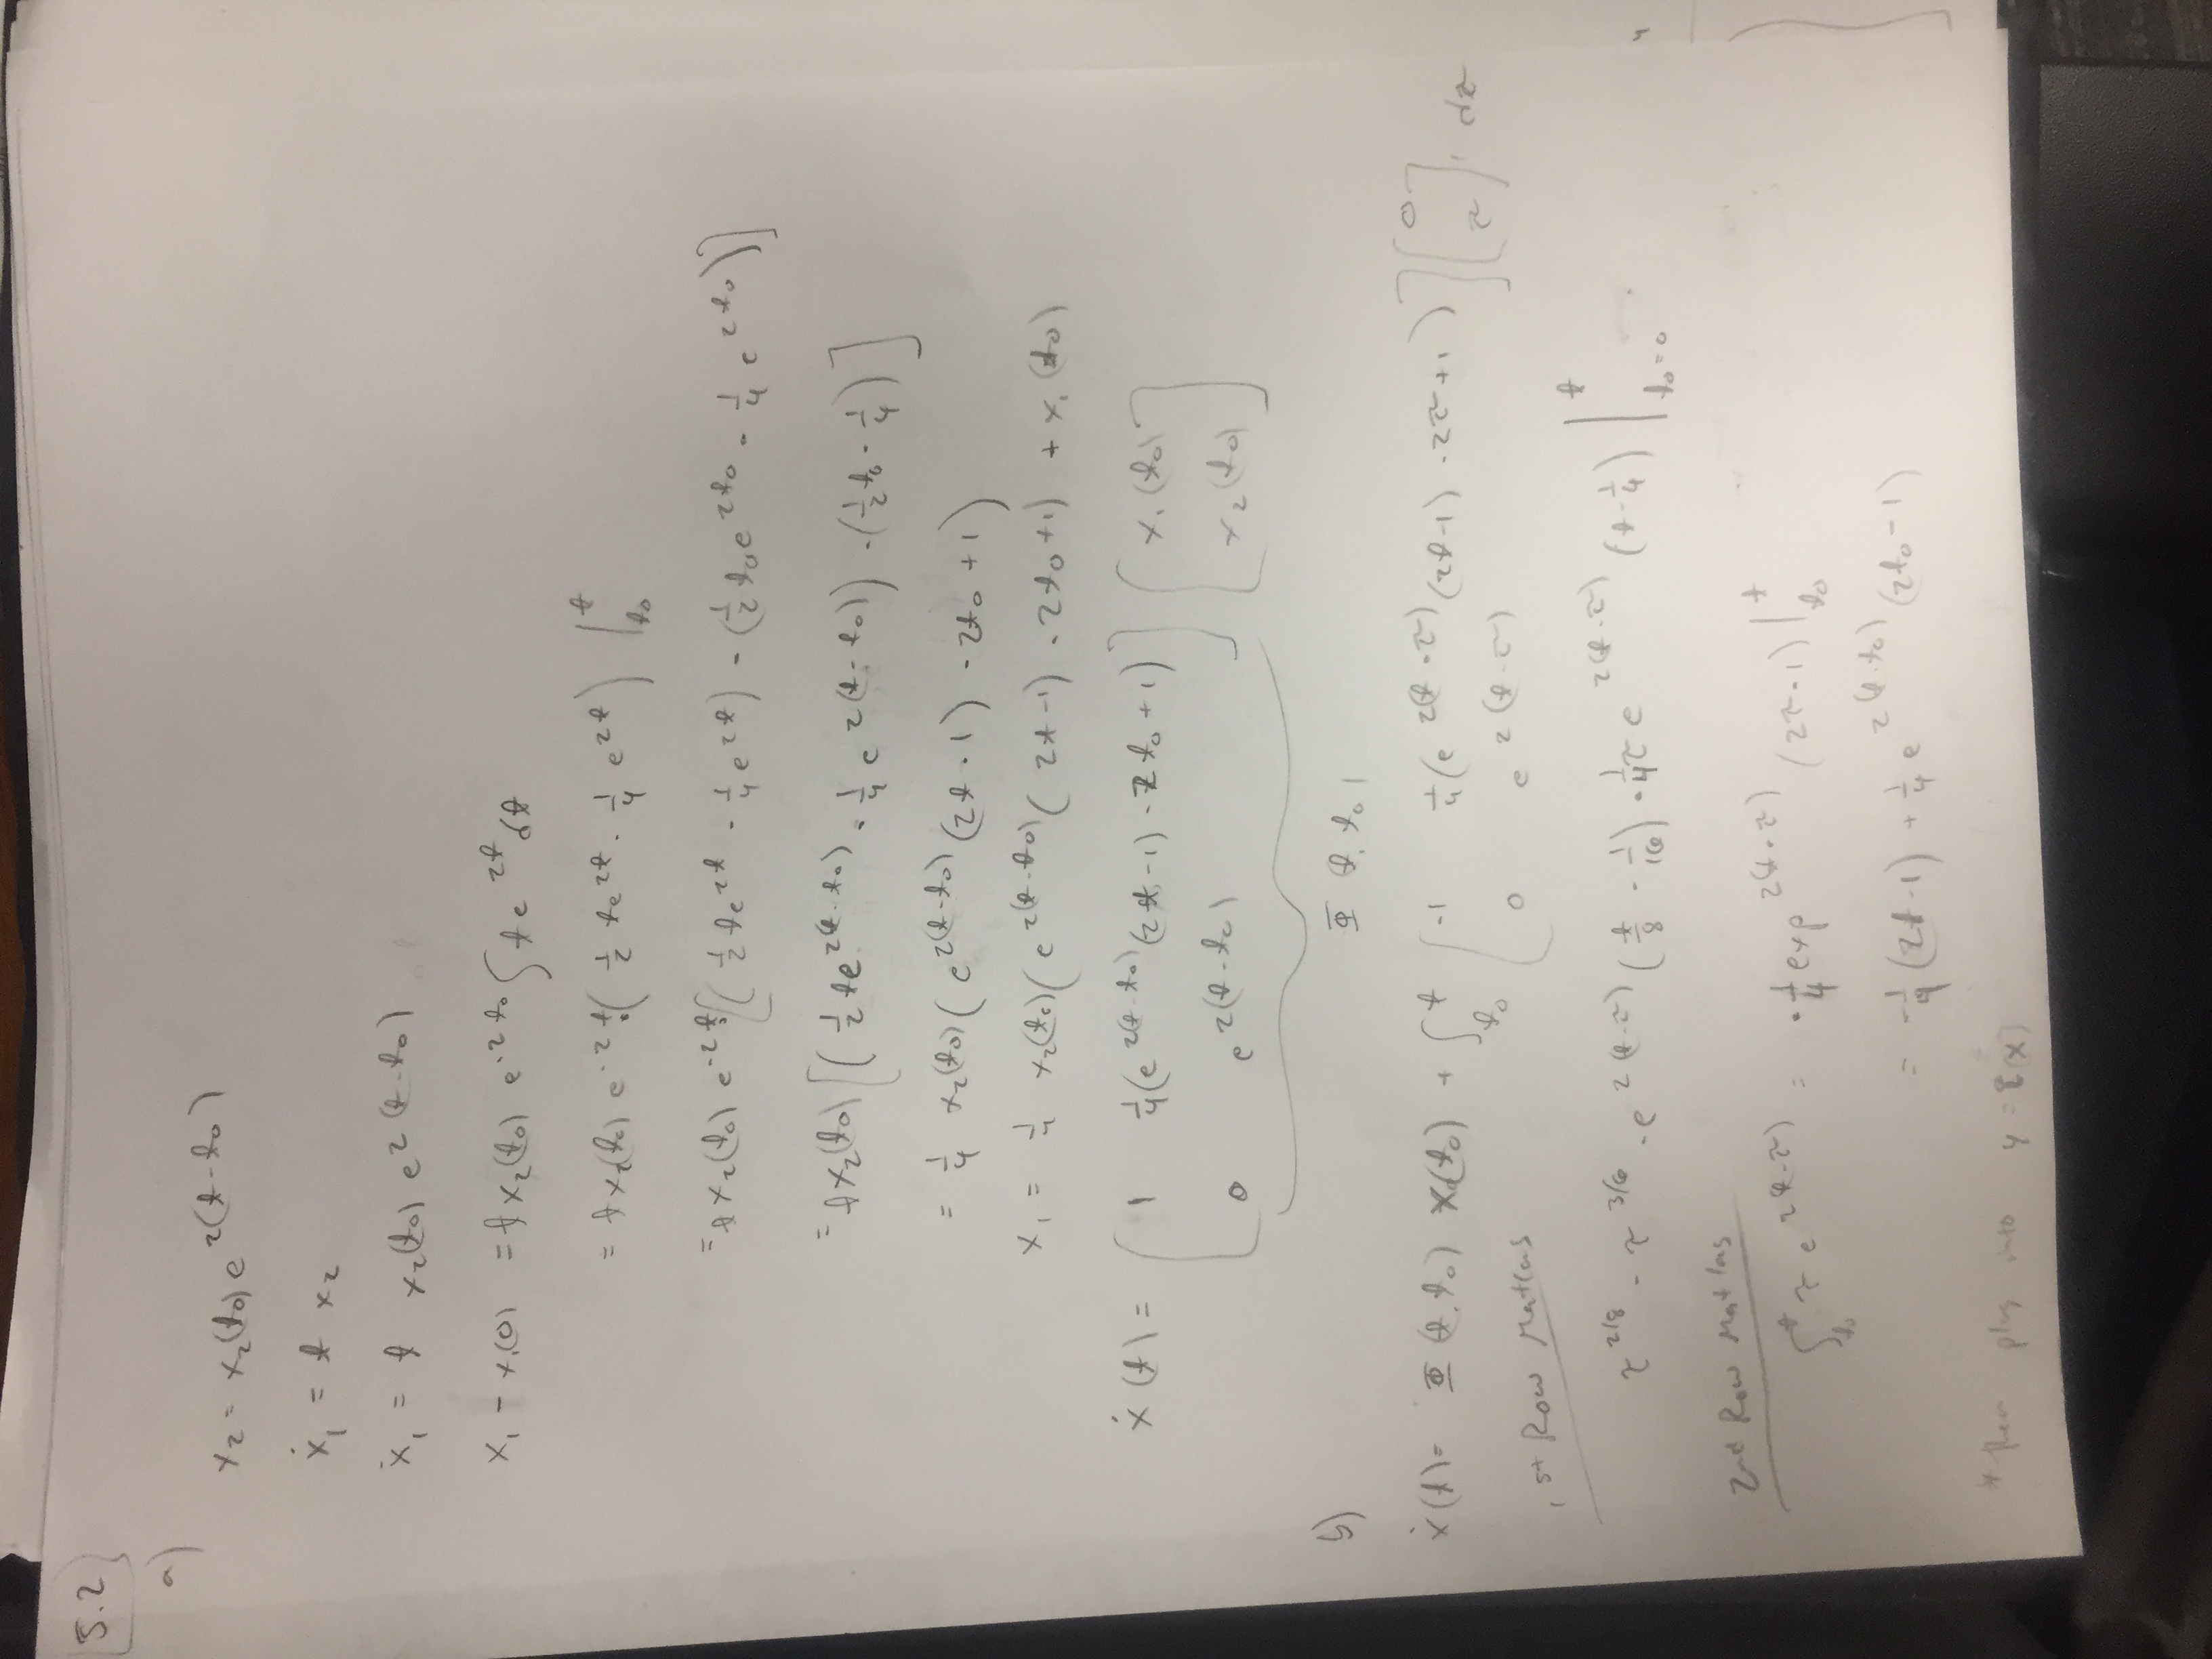 5.2
a)
x₂ = x₂(t₀) e^{2(t-t₀)}
ẋ₁ = t x₂
ẋ₁ = t x₂(t₀) e^{2(t-t₀)}
x₁ - x₁(0) = t x₂(t₀) e^{-2t₀} ∫ t e^{2t} dt
= t x₂(t₀) e^{-2t₀} ( 1/2 t e^{2t} - 1/4 e^{2t} ) |_{t₀}^{t}
= t x₂(t₀) e^{-2t₀} [ ( 1/2 t e^{2t} - 1/4 e^{2t} ) - ( 1/2 t₀ e^{2t₀} - 1/4 e^{2t₀} ) ]
= t x₂(t₀) [ ( 1/2 t e^{2(t-t₀)} - 1/4 e^{2(t-t₀)} ) - ( 1/2 t₀ - 1/4 ) ]
= 1/4 x₂(t₀) ( e^{2(t-t₀)} (2t-1) - 2t₀ + 1 )
x₁ = 1/4 x₂(t₀) ( e^{2(t-t₀)} (2t-1) - 2t₀ + 1 ) + x₁(t₀)
ẋ(t) = [ 1 1/4( e^{2(t-t₀)} (2t-1) - 2t₀ + 1 ) ] [ x₁(t₀) ]
[ 0 e^{2(t-t₀)} ] [ x₂(t₀) ]
Φ(t, t₀)
b)
ẋ(t) = Φ(t, t₀) x(t₀) + ∫_{t₀}^{t} [ -1 1/4( e^{2(t-τ)} (2t-1) - 2τ + 1 ) ] [ 0 ] dτ
[ 0 e^{2(t-τ)} ] [ τ ]
1st Row Matlab
τ^{2/8} - τ^{3/6} - e^{2(t-τ)} ( t/8 - 1/16 ) - 1/4 τ e^{2(t-τ)} ( t - 1/4 ) |_{t₀=0}^{t}
2nd Row Matlab
∫_{t₀}^{t} τ e^{2(t-τ)} = - 1/4 exp^{2(t-τ)} (2τ-1) |_{t₀}^{t}
= - 1/4 (2t-1) + 1/4 e^{2(t-t₀)} (2t₀-1)
* then plug into y =